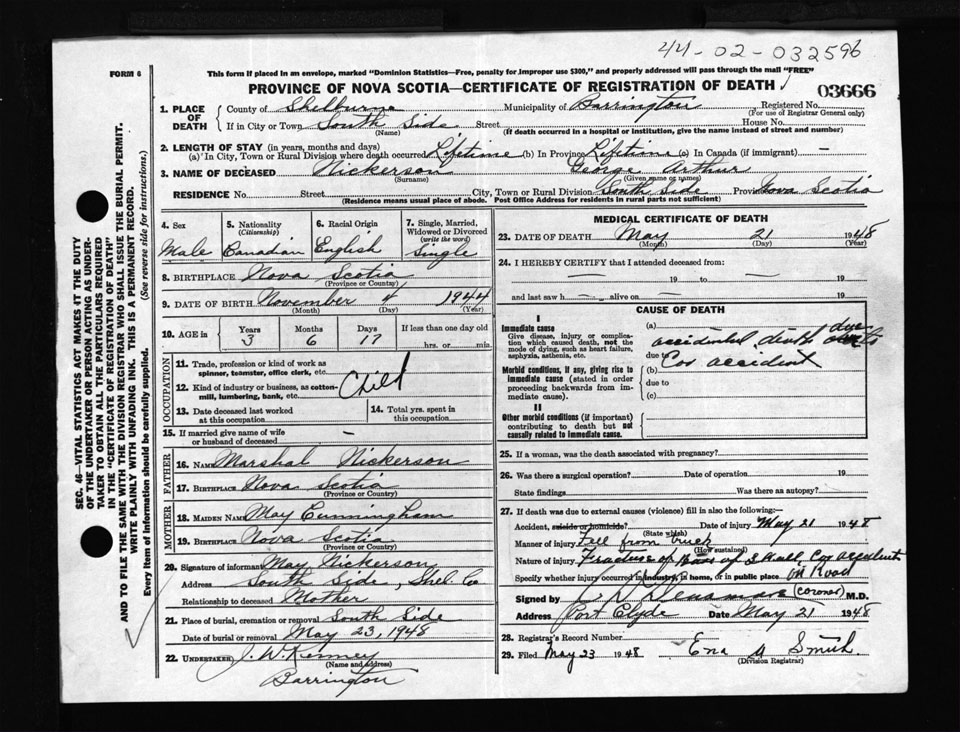 44-02-032596
FORM 6
This form if placed in an envelope, marked "Dominion Statistics—Free, penalty for improper use $300," and properly addressed will pass through the mail "FREE"
PROVINCE OF NOVA SCOTIA—CERTIFICATE OF REGISTRATION OF DEATH
03666
1. PLACE OF DEATH
County of Shelburne Municipality of Barrington Registered No.
(For use of Registrar General only)
If in City or Town South Side Street House No.
(Name) (If death occurred in a hospital or institution, give the name instead of street and number)
2. LENGTH OF STAY (in years, months and days)
(a) In City, Town or Rural Division where death occurred Lifetime (b) In Province Lifetime (c) In Canada (if immigrant) —
3. NAME OF DECEASED Nickerson George Arthur
(Surname) (Given name or names)
RESIDENCE No. Street City, Town or Rural Division South Side Province Nova Scotia
(Residence means usual place of abode. Post Office Address for residents in rural parts not sufficient)
4. Sex
Male
5. Nationality
(Citizenship)
Canadian
6. Racial Origin
English
7. Single, Married, Widowed or Divorced
(write the word)
Single
8. BIRTHPLACE Nova Scotia
(Province or Country)
9. DATE OF BIRTH November 4 1944
(Month) (Day) (Year)
10. AGE in
Years Months Days If less than one day old
3 6 17 hrs. or min.
OCCUPATION
11. Trade, profession or kind of work as
spinner, teamster, office clerk, etc.
12. Kind of industry or business, as cotton-
mill, lumbering, bank, etc.
Child
13. Date deceased last worked
at this occupation
14. Total yrs. spent in
this occupation
15. If married give name of wife
or husband of deceased —
FATHER
16. NAME Marshal Nickerson
17. BIRTHPLACE Nova Scotia
(Province or Country)
MOTHER
18. MAIDEN NAME May Cunningham
19. BIRTHPLACE Nova Scotia
(Province or Country)
20. Signature of informant May Nickerson
Address South Side, Shel. Co
Relationship to deceased Mother
21. Place of burial, cremation or removal South Side
Date of burial or removal May 23, 1948
22. UNDERTAKER J. W. Kenney
(Name and address)
Barrington
MEDICAL CERTIFICATE OF DEATH
23. DATE OF DEATH May 21 1948
(Month) (Day) (Year)
24. I HEREBY CERTIFY that I attended deceased from:
— 19 to — 19
and last saw h — alive on — 19
CAUSE OF DEATH
I
Immediate cause
Give disease, injury or complication which caused death, not the mode of dying, such as heart failure, asphyxia, asthenia, etc.
Morbid conditions, if any, giving rise to immediate cause (stated in order proceeding backwards from immediate cause).
II
Other morbid conditions (if important) contributing to death but not causally related to immediate cause.
(a) accidental death due to
due to
(b) Car accident
due to
(c)
25. If a woman, was the death associated with pregnancy?
26. Was there a surgical operation? Date of operation 19
State findings Was there an autopsy?
27. If death was due to external causes (violence) fill in also the following:
Accident, suicide or homicide? Date of injury May 21 1948
(State which)
Manner of injury Fell from truck
(How sustained)
Nature of injury Fracture of Base of Skull, Car accident
Specify whether injury occurred in industry, in home, or in public place on Road
Signed by (coroner) M.D.
Address Port Clyde Date May 21 1948
28. Registrar's Record Number
29. Filed May 23 1948 Ena A Smith
(Division Registrar)
SEC. 46—VITAL STATISTICS ACT MAKES IT THE DUTY
OF THE UNDERTAKER OR PERSON ACTING AS UNDER-
TAKER TO OBTAIN ALL THE PARTICULARS REQUIRED
IN THE "CERTIFICATE OF REGISTRATION OF DEATH"
AND TO FILE THE SAME WITH THE DIVISION REGISTRAR WHO SHALL ISSUE THE BURIAL PERMIT.
WRITE PLAINLY WITH UNFADING INK. THIS IS A PERMANENT RECORD.
Every item of information should be carefully supplied. (See reverse side for instructions.)